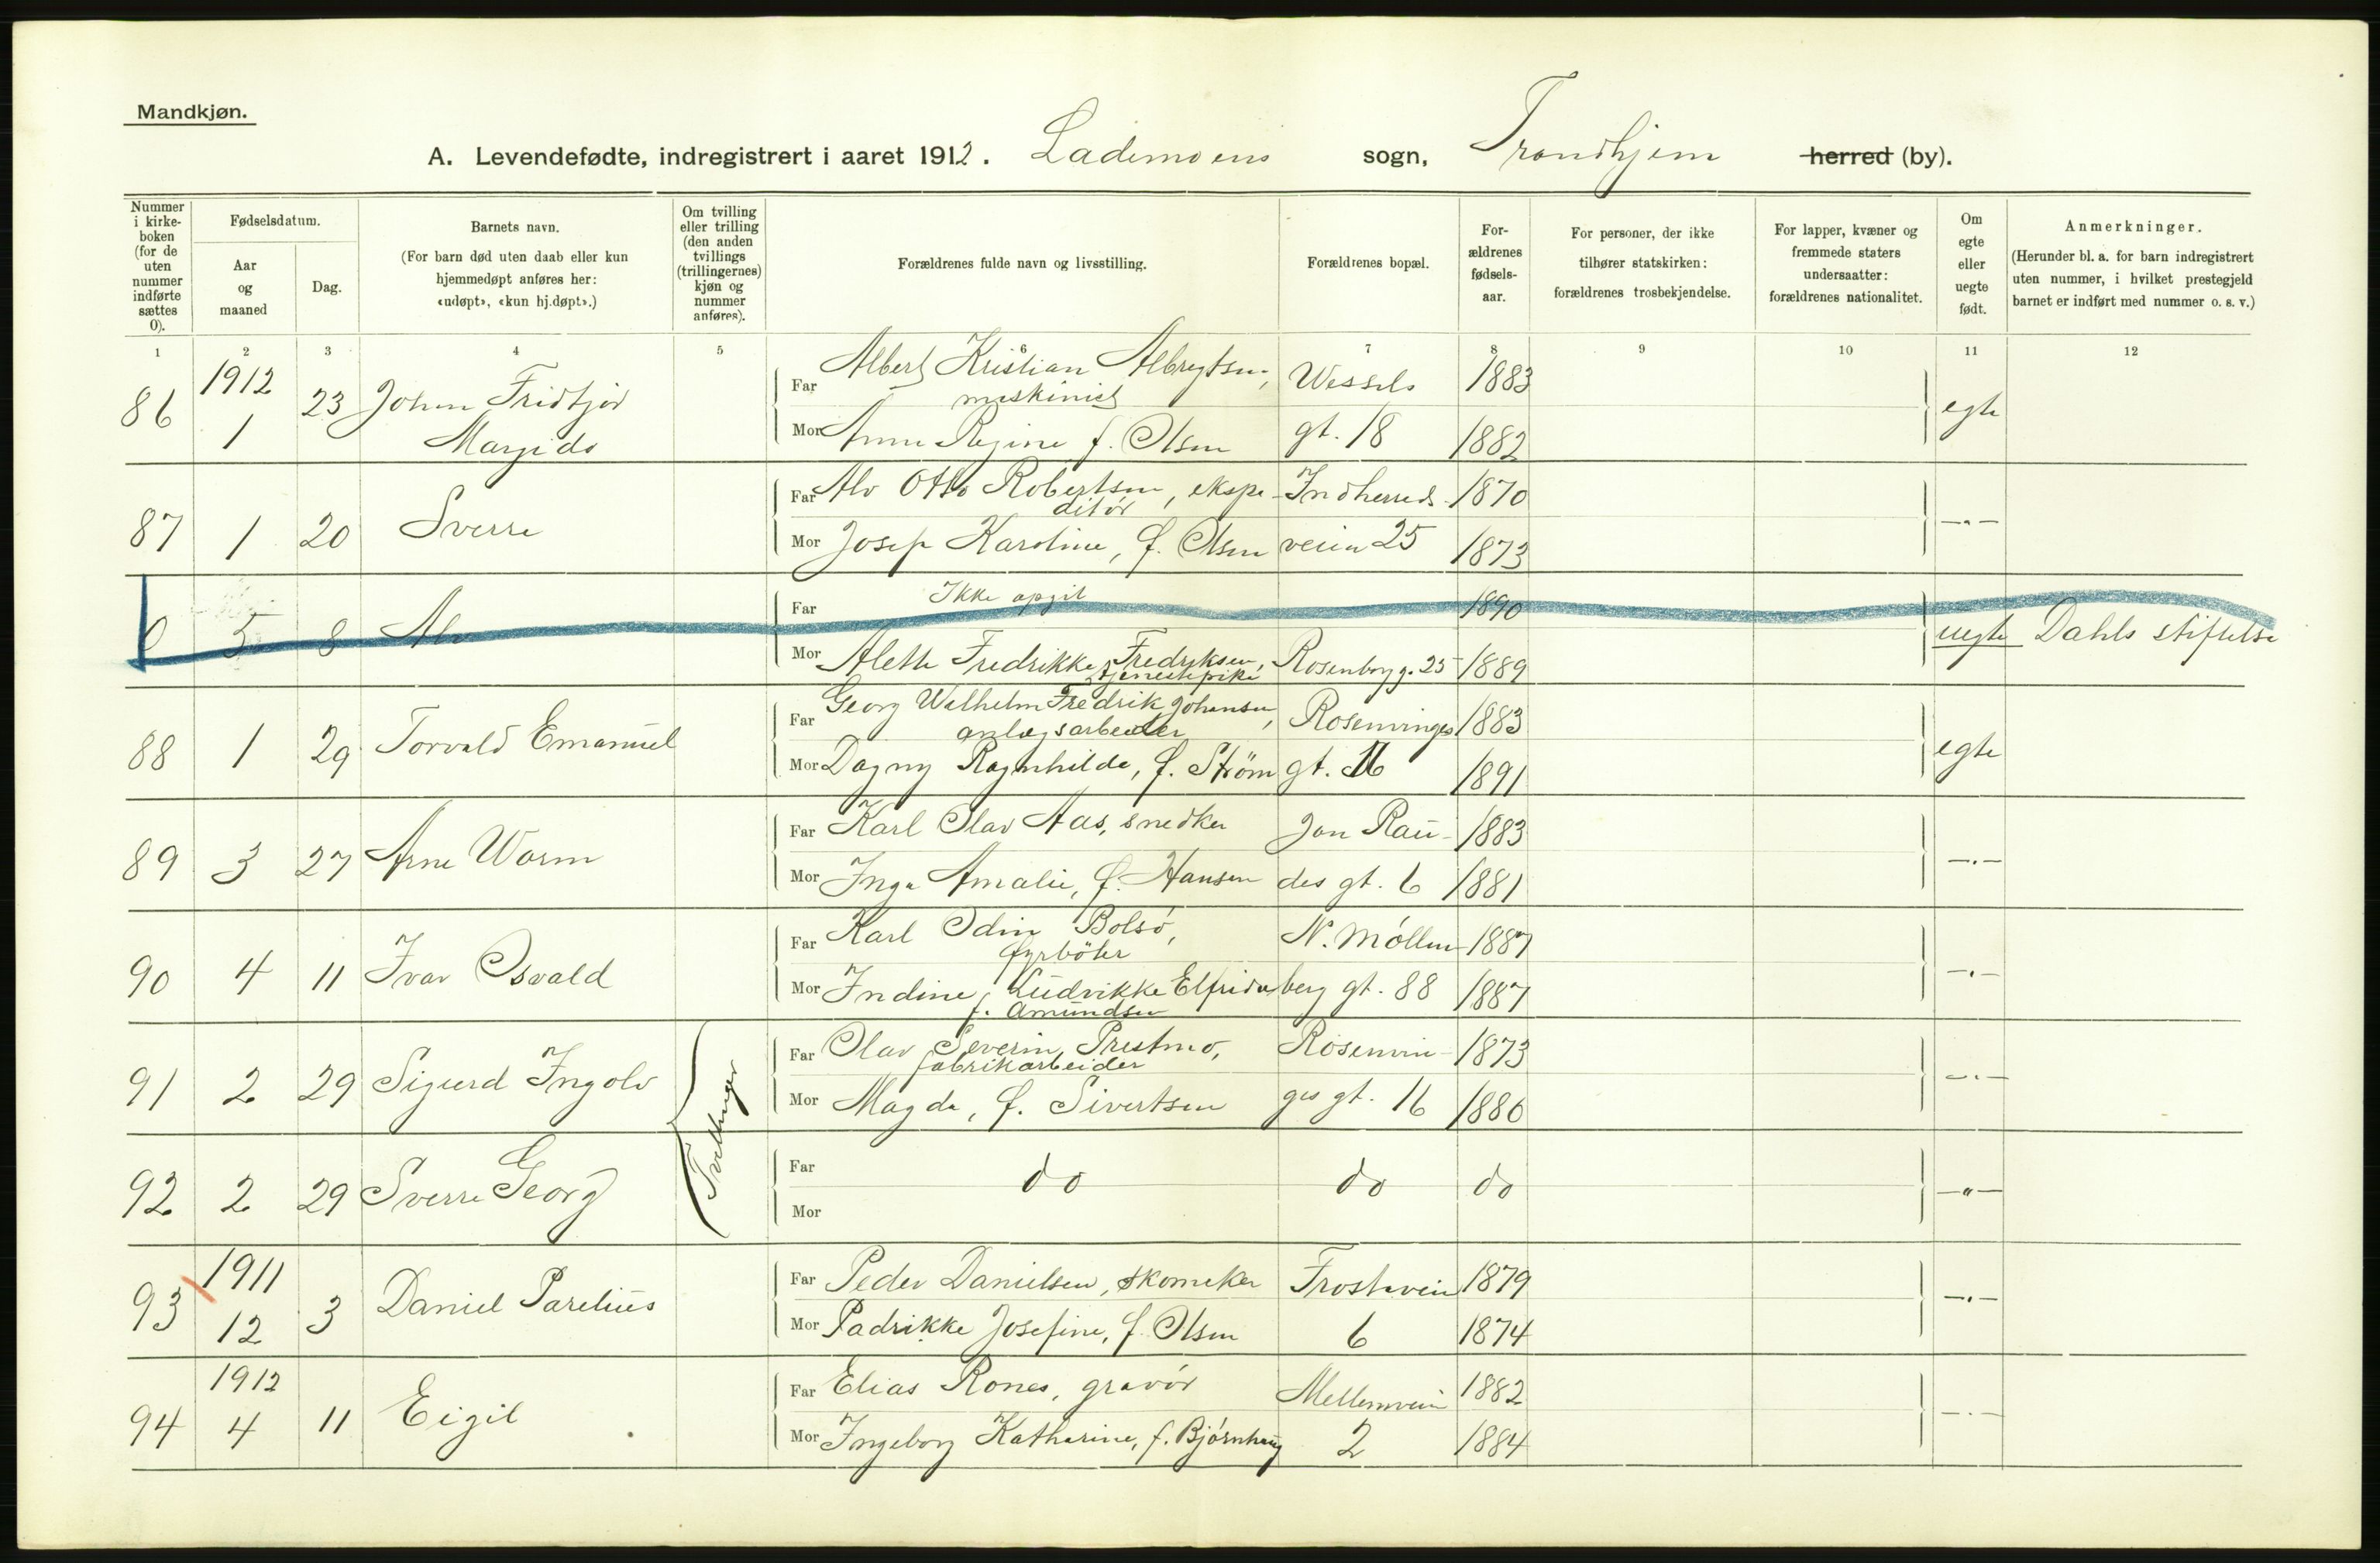 Mandkjøn.
A. Levendefødte, indregistrert i aaret 1912. Lademoens sogn, Trondhjem herred (by).
Nummer i kirke-boken (for de uten nummer indførte sættes 0).
Fødselsdatum.
Aar og maaned
Dag.
Barnets navn.
(For barn død uten daab eller kun hjemmedøpt anføres her: «udøpt», «kun hj.døpt».)
Om tvilling eller trilling (den anden tvillings (trillingernes) kjøn og nummer anføres).
Forældrenes fulde navn og livsstilling.
Forældrenes bopæl.
For-ældrenes fødsels-aar.
For personer, der ikke tilhører statskirken: forældrenes trosbekjendelse.
For lapper, kvæner og fremmede staters undersaatter: forældrenes nationalitet.
Om egte eller uegte født.
Anmerkninger.
(Herunder bl. a. for barn indregistrert uten nummer, i hvilket prestegjeld barnet er indført med nummer o. s. v.)
1 2 3 4 5 6 7 8 9 10 11 12
86 1912 1 23 Johan Fridtjov Margido
Far Albert Kristian Albregtsen, maskinist Wessels 1883
Mor Anna Regine f. Olsen gt. 18 1882 egte
87 1 20 Sverre
Far Alv Otto Robertsen, ekspeditör Indherreds- 1870
Mor Josefa Karoline, f. Olsen veien 25 1873 —„—
0 5 8 Alv
Far Ikke opgit 1890
Mor Alette Fredrikke Fredriksen, tjenestepike Rosenborg g. 25 1889 uegte Dahls stiftelse
88 1 29 Torvald Emanuel
Far Georg Wilhelm Fredrik Johansen, anlægsarbeider Rosenvinges 1883
Mor Dagny Ragnhilda, f. Strøm gt. 16 1891 egte
89 3 27 Arne Worm
Far Karl Olav Aas, snedker Jon Rau- 1883
Mor Inga Amalie, f. Hansen des gt. 6 1881 —„—
90 4 11 Ivar Osvald
Far Karl Odin Bolsö, fyrböter N. Möllen- 1887
Mor Indine Ludvikke Elfrida f. Amundsen berg gt. 88 1887 —„—
91 2 29 Sigurd Ingolv Tvillinger
Far Olav Severin Prestmo, fabrikarbeider Rosenvin- 1873
Mor Magda, f. Sivertsen ges gt. 16 1886 —„—
92 2 29 Sverre Georg
Far do do do —„—
Mor
93 1911 12 3 Daniel Parelius
Far Peder Danielsen, skomaker Frostavein 1879
Mor Padrikke Josefine, f. Olsen 6 1874 —„—
94 1912 4 11 Eigil
Far Elias Rones, gravör Mellemvein 1882
Mor Ingeborg Katharine, f. Björnhaug 2 1884 —„—